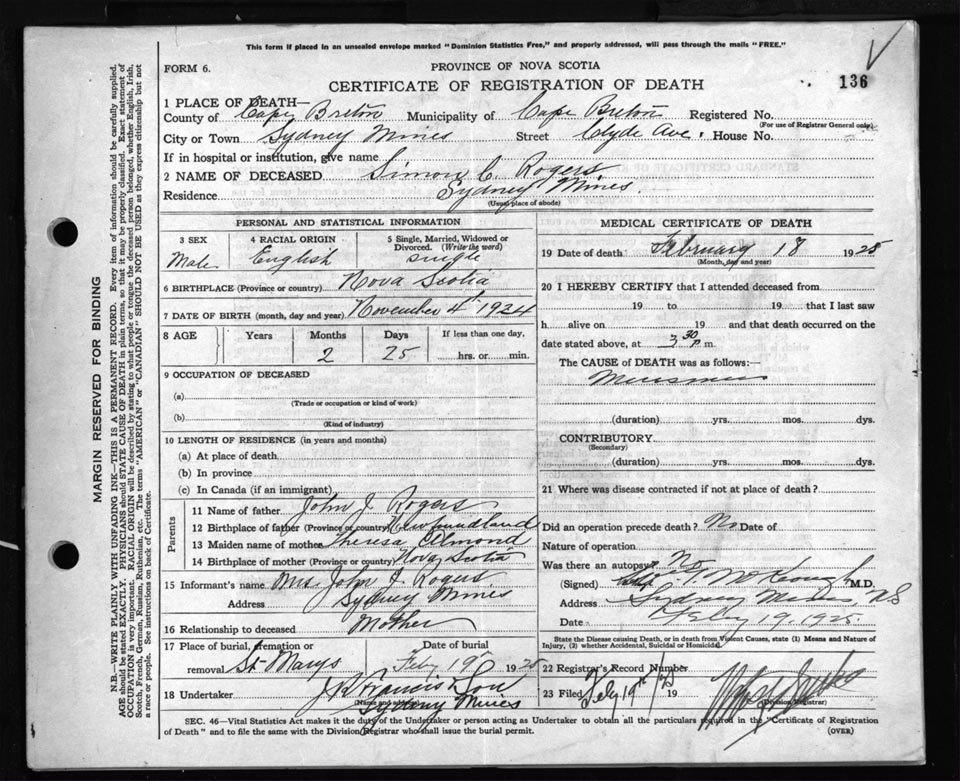 This form if placed in an unsealed envelope marked "Dominion Statistics Free," and properly addressed, will pass through the mails "FREE."
FORM 6.
PROVINCE OF NOVA SCOTIA
136
CERTIFICATE OF REGISTRATION OF DEATH
1 PLACE OF DEATH—
County of Cape Breton Municipality of Cape Breton Registered No.
(For use of Registrar General only)
City or Town Sydney Mines Street Clyde Ave. House No.
If in hospital or institution, give name
2 NAME OF DECEASED Simon C. Rogers
Residence Sydney Mines
(Usual place of abode)
PERSONAL AND STATISTICAL INFORMATION
3 SEX Male
4 RACIAL ORIGIN English
5 Single, Married, Widowed or Divorced. (Write the word) single
6 BIRTHPLACE (Province or country) Nova Scotia
7 DATE OF BIRTH (month, day and year) November 4th 1924
8 AGE Years Months Days If less than one day,
2 25 hrs. or min.
9 OCCUPATION OF DECEASED
(a)
(Trade or occupation or kind of work)
(b)
(Kind of industry)
10 LENGTH OF RESIDENCE (in years and months)
(a) At place of death
(b) In province
(c) In Canada (if an immigrant)
Parents
11 Name of father John J. Rogers
12 Birthplace of father (Province or country) Newfoundland
13 Maiden name of mother Theresa Almond
14 Birthplace of mother (Province or country) Nova Scotia
15 Informant's name Mrs. John J. Rogers
Address Sydney Mines
16 Relationship to deceased Mother
17 Place of burial, cremation or removal St Marys
Date of burial Feby 19 1925
18 Undertaker J.R. Francis & Son
(Name and address)
Sydney Mines
MEDICAL CERTIFICATE OF DEATH
19 Date of death February 18 1925
(Month, day and year)
20 I HEREBY CERTIFY that I attended deceased from
19 to 19 that I last saw
h alive on 19 and that death occurred on
date stated above, at 3.30 p.m.
The CAUSE of DEATH was as follows:
(duration) yrs. mos. dys.
CONTRIBUTORY
(Secondary)
(duration) yrs. mos. dys.
21 Where was disease contracted if not at place of death?
Did an operation precede death? No Date of
Nature of operation
Was there an autopsy? No
(Signed) McKeough M.D.
Address Sydney Mines, N.S.
Date Feby 19, 1925.
State the Disease causing Death, or in death from Violent Causes, state (1) Means and Nature of Injury, (2) whether Accidental, Suicidal or Homicidal.
22 Registrar's Record Number
23 Filed Feby 19th /25 19
(Division Registrar)
SEC. 46—Vital Statistics Act makes it the duty of the Undertaker or person acting as Undertaker to obtain all the particulars required in the "Certificate of Registration
of Death" and to file the same with the Division Registrar who shall issue the burial permit.
(OVER)
MARGIN RESERVED FOR BINDING
N.B.—WRITE PLAINLY WITH UNFADING INK—THIS IS A PERMANENT RECORD. Every item of information should be carefully supplied.
AGE should be stated EXACTLY. PHYSICIANS should STATE CAUSE OF DEATH in plain terms, so that it may be properly classified. Exact statement of
OCCUPATION is very important. RACIAL ORIGIN will be described by stating to what people or tongue the deceased person belonged, whether English, Irish,
Scotch, French, German, Russian, Ruthenian, etc. The terms "AMERICAN" or "CANADIAN" SHOULD NOT BE USED as they express citizenship but not
a race or people. See instructions on back of Certificate.